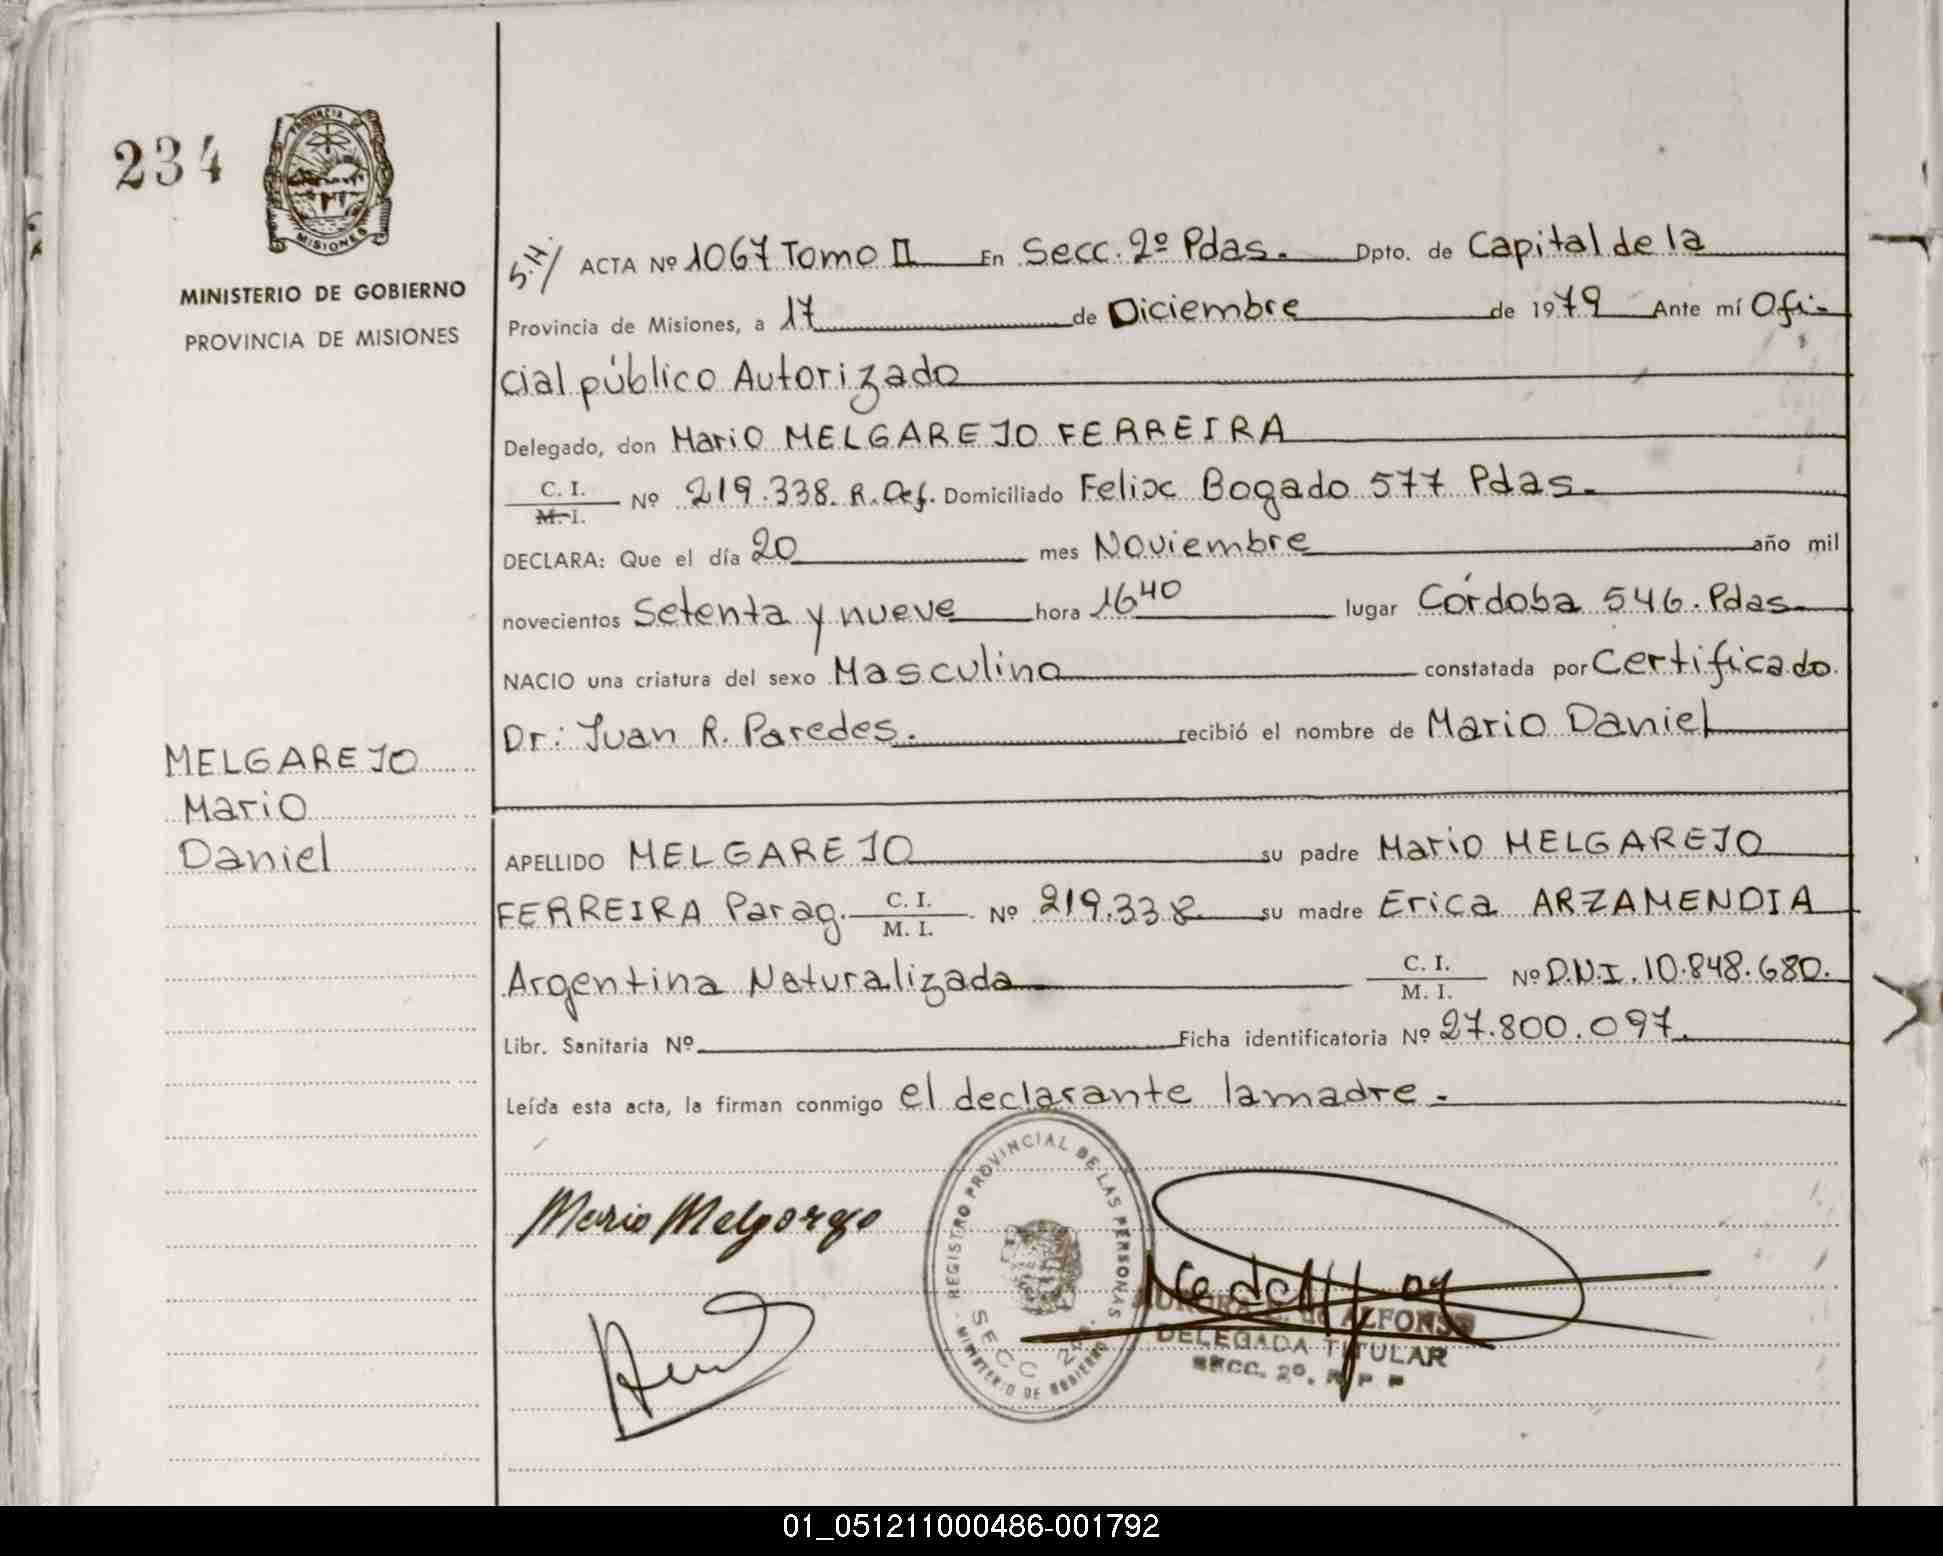 234
PROVINCIA DE
MISIONES
MINISTERIO DE GOBIERNO
PROVINCIA DE MISIONES
S.H./ ACTA Nº 1067 Tomo II En Secc. 2º Pdas. Dpto. de Capital de la
Provincia de Misiones, a 17 de Diciembre de 1979 Ante mí Ofi-
cial público Autorizado
Delegado, don Mario MELGAREJO FERREIRA
C. I.
M. I. Nº 219.338. R. Def. Domiciliado Felix Bogado 577 Pdas.
DECLARA: Que el día 20 mes Noviembre año mil
novecientos Setenta y nueve hora 16 40 lugar Córdoba 546. Pdas.
NACIO una criatura del sexo Masculino constatada por Certificado
Dr: Juan R. Paredes. recibió el nombre de Mario Daniel
MELGAREJO
Mario
Daniel
APELLIDO MELGAREJO su padre Mario MELGAREJO
FERREIRA Parag. C. I. M. I. Nº 219.338 su madre Erica ARZAMENDIA
Argentina Naturalizada C. I. M. I. Nº D.N.I. 10.848.680.
Libr. Sanitaria Nº Ficha identificatoria Nº 27.800.097.
Leída esta acta, la firman conmigo el declarante la madre.-
REGISTRO PROVINCIAL DE LAS PERSONAS
SECC 2
MINISTERIO DE GOBIERNO
Mario Melgarejo
de ALFONSO
DELEGADA TITULAR
SECC. 2º. R P P
01_051211000486-001792